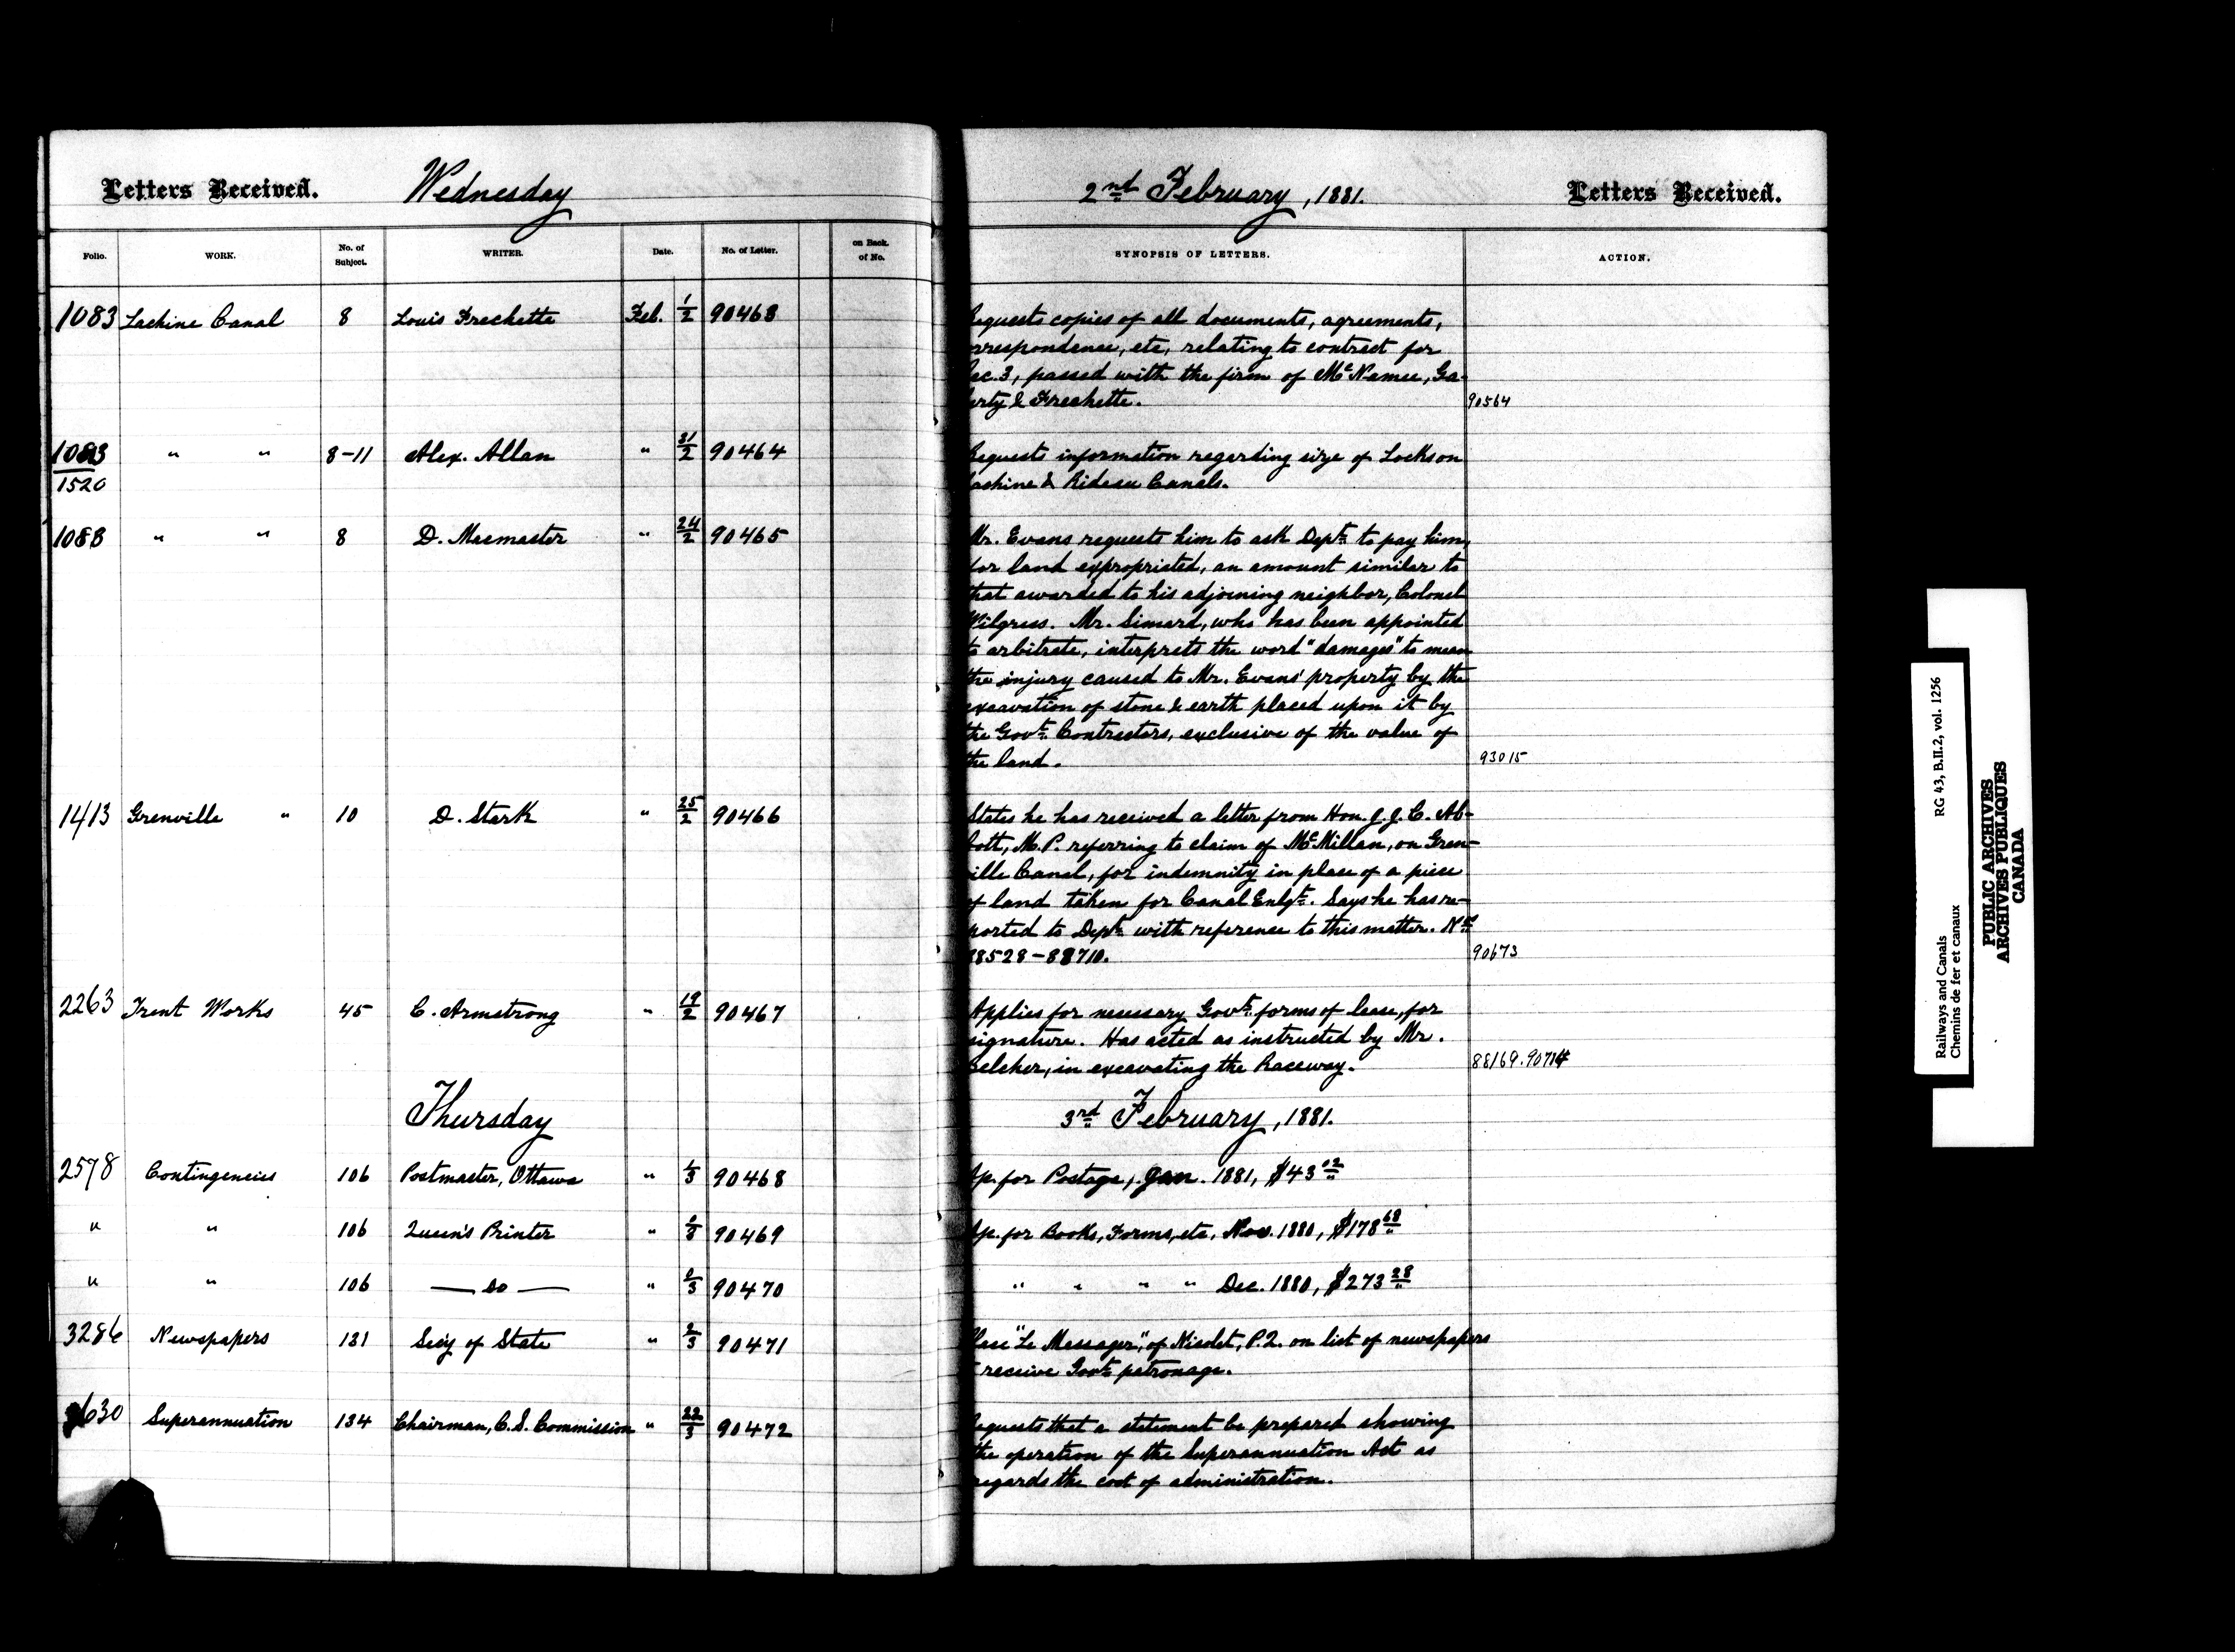 Letters Received. Wednesday 2nd February, 1881. Letters Received.
Folio. WORK. No. of Subject. WRITER. Date. No. of Letter. on Back. of No. SYNOPSIS OF LETTERS. ACTION.
1083 Lachine Canal 8 Louis Frechette Feb. 1/2 90463 equests copies of all documents, agreements,
orrespondence, etc, relating to contract for
ec. 3, passed with the firm of McNamee, Ga-
erty & Frechette. 90564
1083 " " 8-11 Alex. Allan " 31/2 90464 equests information regarding size of Locks on
1520 achine & Rideau Canals.
1083 " " 8 D. Macmaster " 24/2 90465 Mr. Evans requests him to ask Dept. to pay him,
for land expropriated, an amount similar to
that awarded to his adjoining neighbor, Colonel
Wilgress. Mr. Simard, who has been appointed
to arbitrate, interprets the word "damages" to mean
the injury caused to Mr. Evans' property by the
excavation of stone & earth placed upon it by
the Govt. Contractors, exclusive of the value of
the land. 93015
1413 Grenville " 10 D. Stark " 25/2 90466 States he has received a letter from Hon. J. J. C. Ab-
bott, M.P. referring to claim of McMillan, on Gren-
ille Canal, for indemnity in place of a piece
of land taken for Canal Enlgt. Says he has re-
ported to Dept. with reference to this matter. Nos
88528-88710. 90673
2263 Trent Works 45 C. Armstrong " 19/2 90467 Applies for necessary Govt. forms of lease, for
signature. Has acted as instructed by Mr.
Belcher, in excavating the Raceway. 88169.90714
Thursday 3rd February, 1881.
2578 Contingencies 106 Postmaster, Ottawa " 1/3 90468 Ap. for Postage, Jan. 1881, $43 02
" " 106 Queen's Printer " 0/3 90469 Ap. for Books, Forms, etc, Nov. 1880, $178 68
" " 106 — do — " 0/3 90470 " " " " Dec. 1880, $273 28
3286 Newspapers 131 Secy of State " 2/3 90471 lace "Le Messager," of Nicolet, P.Q. on list of newspapers
receive Govt. patronage.
3630 Superannuation 134 Chairman, C. S. Commission " 22/3 90472 equests that a statement be prepared showing
the operation of the Superannuation Act as
regards the cost of administration.
Railways and Canals RG 43, B.II.2, vol. 1256
Chemins de fer et canaux
PUBLIC ARCHIVES
ARCHIVES PUBLIQUES
CANADA